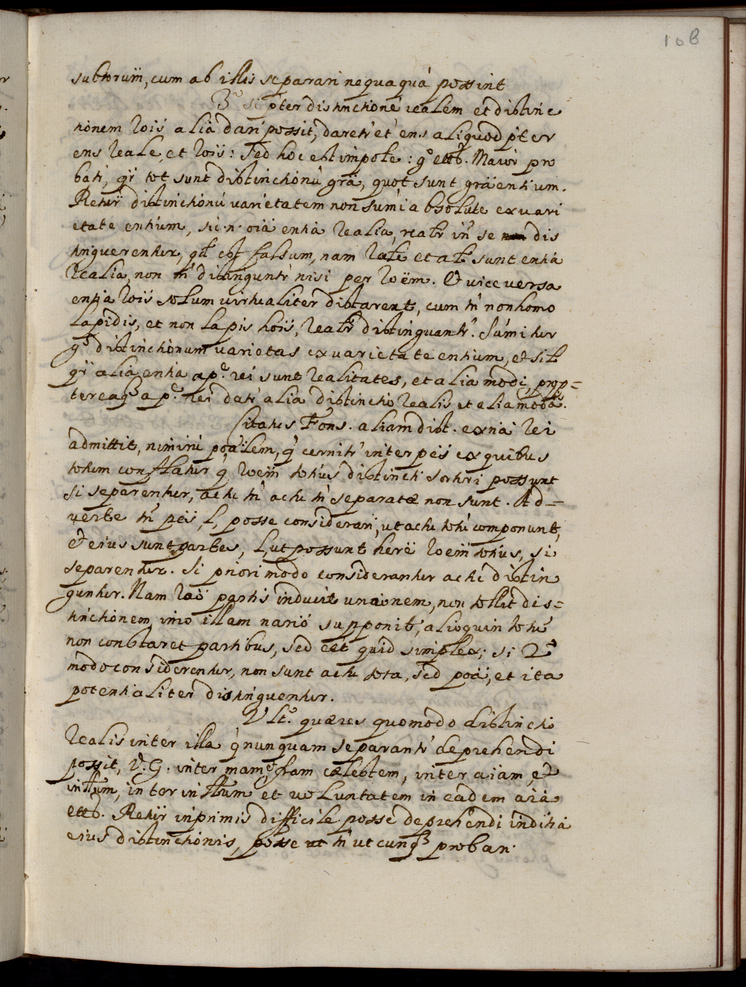 108
subtorum, cum ab illis separari nequaquá possint
3º si pter distinctioné realem et distinc
tionem rois alia dari possit, daret' et ens aliquod pter
ens reale, et rois: sed hoc est impole: gº ettª. Maior pro
bat', qª tot sunt distinctionũ gra, quot sunt gra entium.
Retur distinctionũ varietatem non sumi absolute ex vari
etate entium, sic n. oia entia realia, realr in se dis
tinguerentur, qd falsum, nam et sunt entia
realia, non tñ distinguntr nisi per roem. Et vice versa
entia rois solum virtualiter distarent, cum tñ non homo
lapidis, et non lapis hois, realr distinguantr. Sumitur
gº distinctionum varietas ex varietate entium, et sit
qª alia entia a pe rei sunt realitates, et alia modi, prop=
terea a pe rei dat' alia distinctio realis, et alia modã.
Fons. aliam dist. ex nã rei
admittit, nimirũ poãlem, q cernitr inter pes ex quibus
totum constatur q roem totius distincti sortiri possunt
si separentur, actu tñ actu separatæ non sunt. Ad=
verte tñ pes, posse considerari, ut actu totũ componunt,
et eius sunt partes, l, ut possunt here roem totius, si
separentur. Si priori modo considerantur actu distin
guntur. Nam rão partis inducit unionem, non tollit dis=
tinctionem, imo illam supponit, alioquin totũ
non constaret partibus, sed est quid simplex; si 2º
modo considerentur, non sunt actu tota, sed poã, et ita
potentialiter distinguentur.
Ult. quæres quomodo distinctio
realis inter illa q nunquam separantr deprehendi
possit, V.G. inter cælestem, inter aiam, et
inttum, inter inttum et voluntatem in eadem aia
ettª. Retur inprimis difficile posse deprehendi indicia
eius distinctionis, posse tñ utcunqȝ proban.